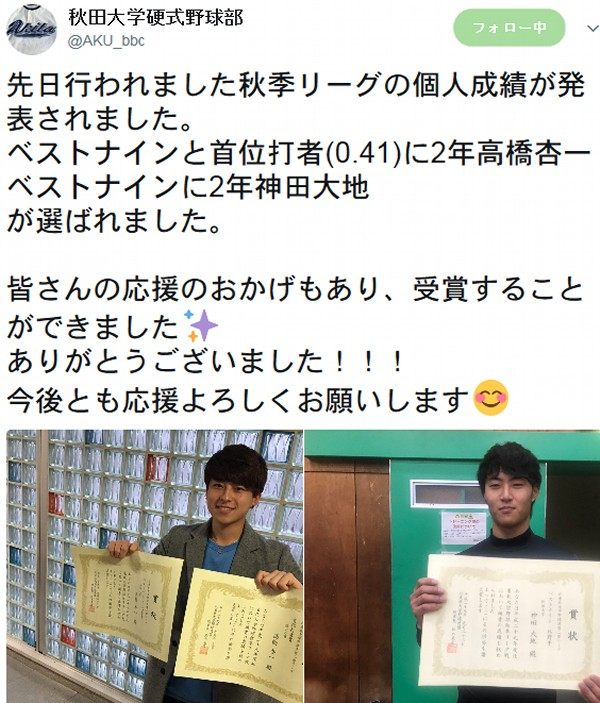 秋田大学硬式野球部
@AKU_bbc
フォロー中
先日行われました秋季リーグの個人成績が発
表されました。
ベストナインと首位打者(0.41)に2年高橋杏一
ベストナインに2年神田大地
が選ばれました。
皆さんの応援のおかげもあり、受賞すること
ができました✨
ありがとうございました！！！
今後とも応援よろしくお願いします😊
賞状
賞状
神田大地殿